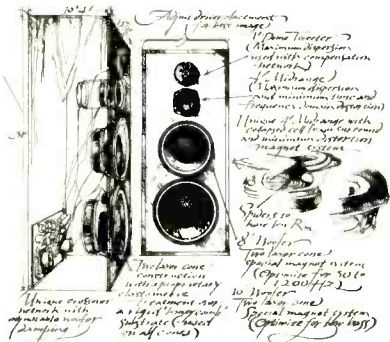 10" 4"
Adjust driver placement
for best image)
1" Dome Tweeter
(Maximum dispersion
used with compensation
network)
4" Midrange
(Maximum dispersion
and minimum time and
frequency domain distortion)
Unique 4" Midrange with
closed cell foam surround
and minimum distortion
magnet system
Spiders to
have low Rm
8" Woofer
Two layer cone
Special magnet system
(Optimize for 50 to
1200 Hz)
10" Woofer
Two layer cone
Special magnet system
(Optimize for low bass)
Two layer cone
construction
with a proprietary
elastomeric
on
a rigid
substrate (based
on all cones)
Unique crossover
network with
adjustable woofer
damping